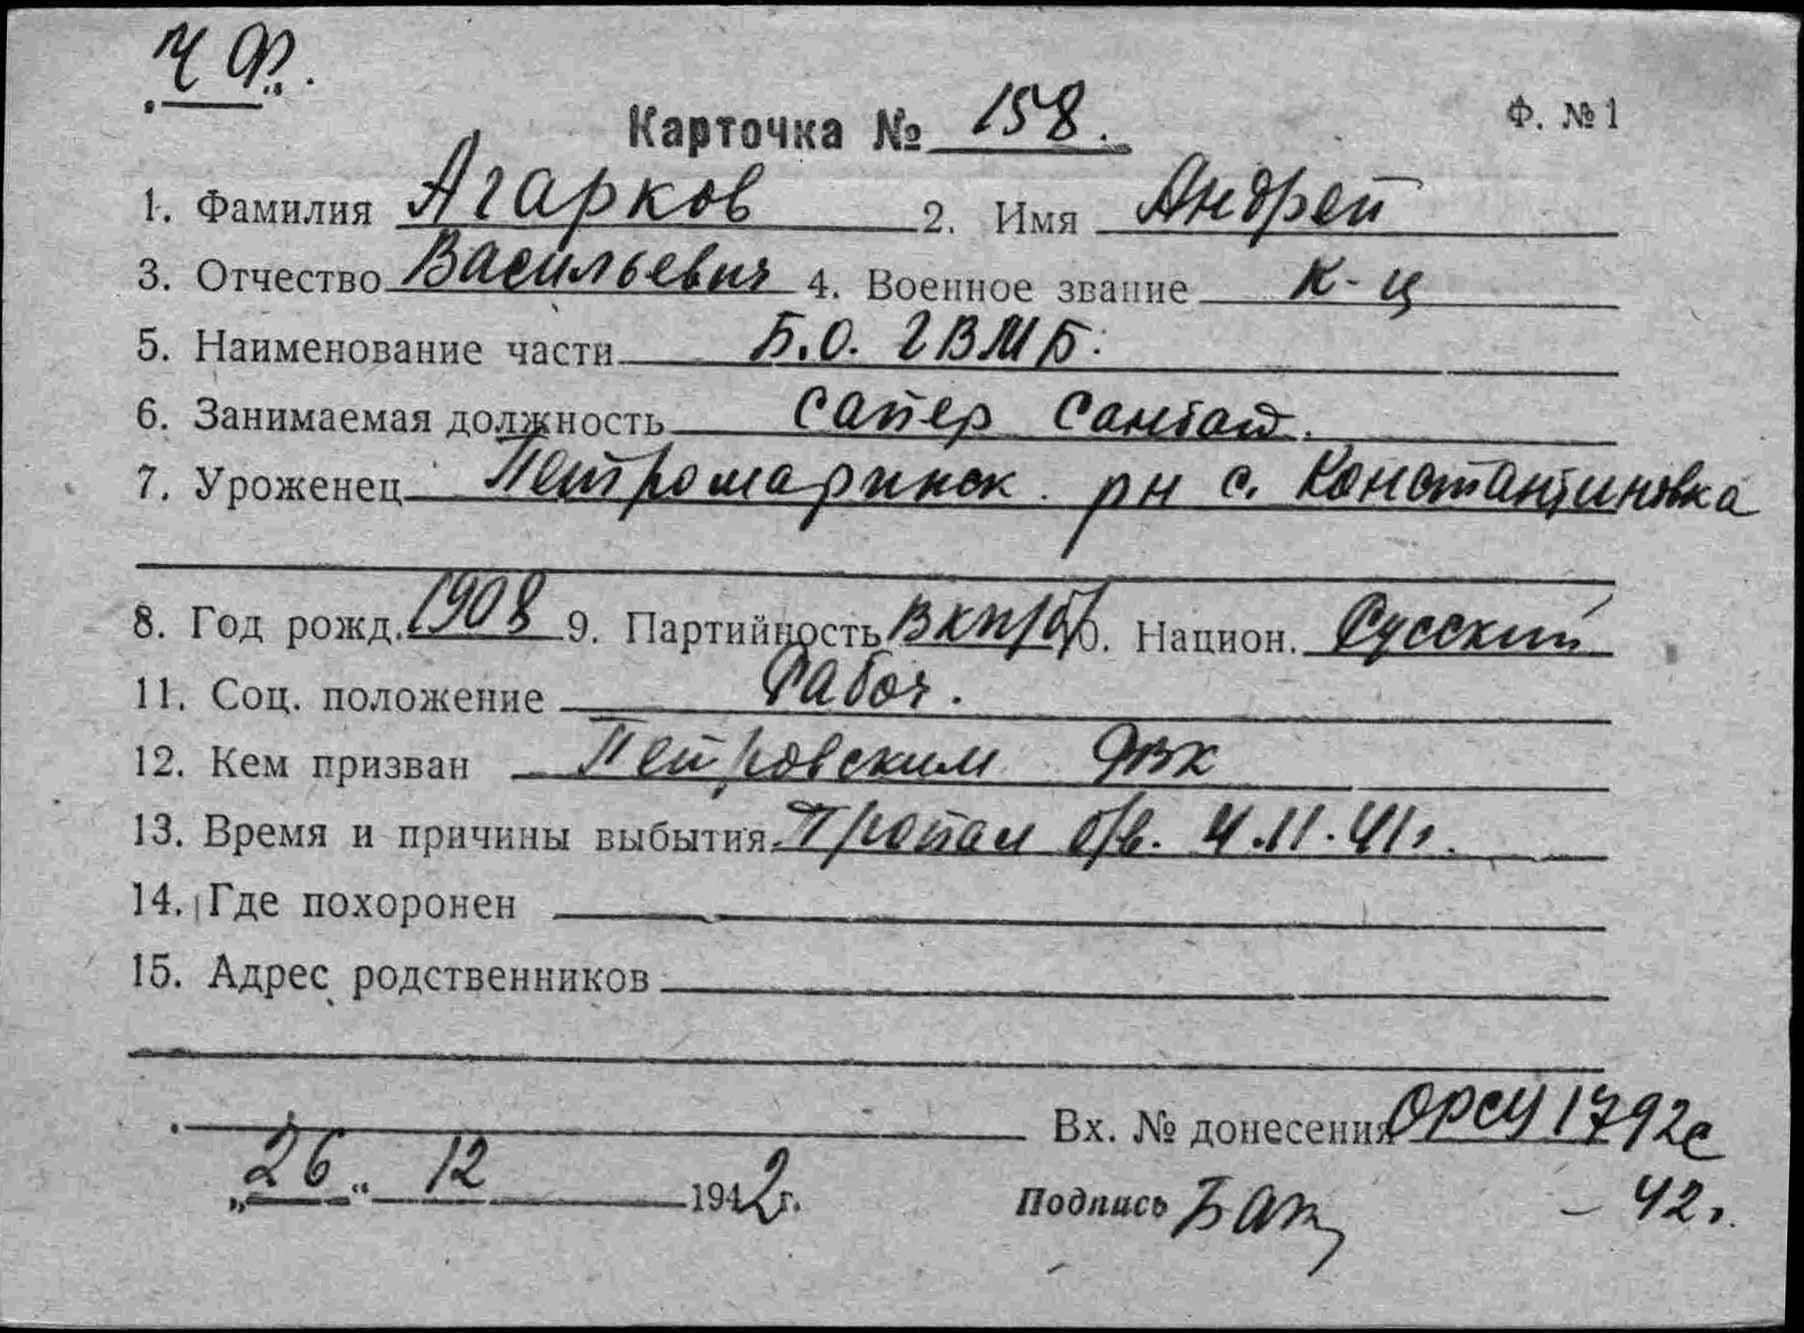 ЧФ.
Ф. №1
Карточка № 158.
1. Фамилия Агарков 2. Имя Андрей
3. Отчество Васильевич 4. Военное звание к-ц
5. Наименование части Б.О. ГВМБ.
6. Занимаемая должность сапер Санбат.
7. Уроженец Петромаринск. рн с. Константиновка
8. Год рожд. 1908 9. Партийность ВКП/б/ 10. Национ. Русский
11. Соц. положение Рабоч.
12. Кем призван Петровским РВК
13. Время и причины выбытия Пропал б/в. 4.11.41г.
14. Где похоронен
15. Адрес родственников
Вх. № донесения ОРСУ 1792с
„26“ 12 1942г. Подпись – 42г.